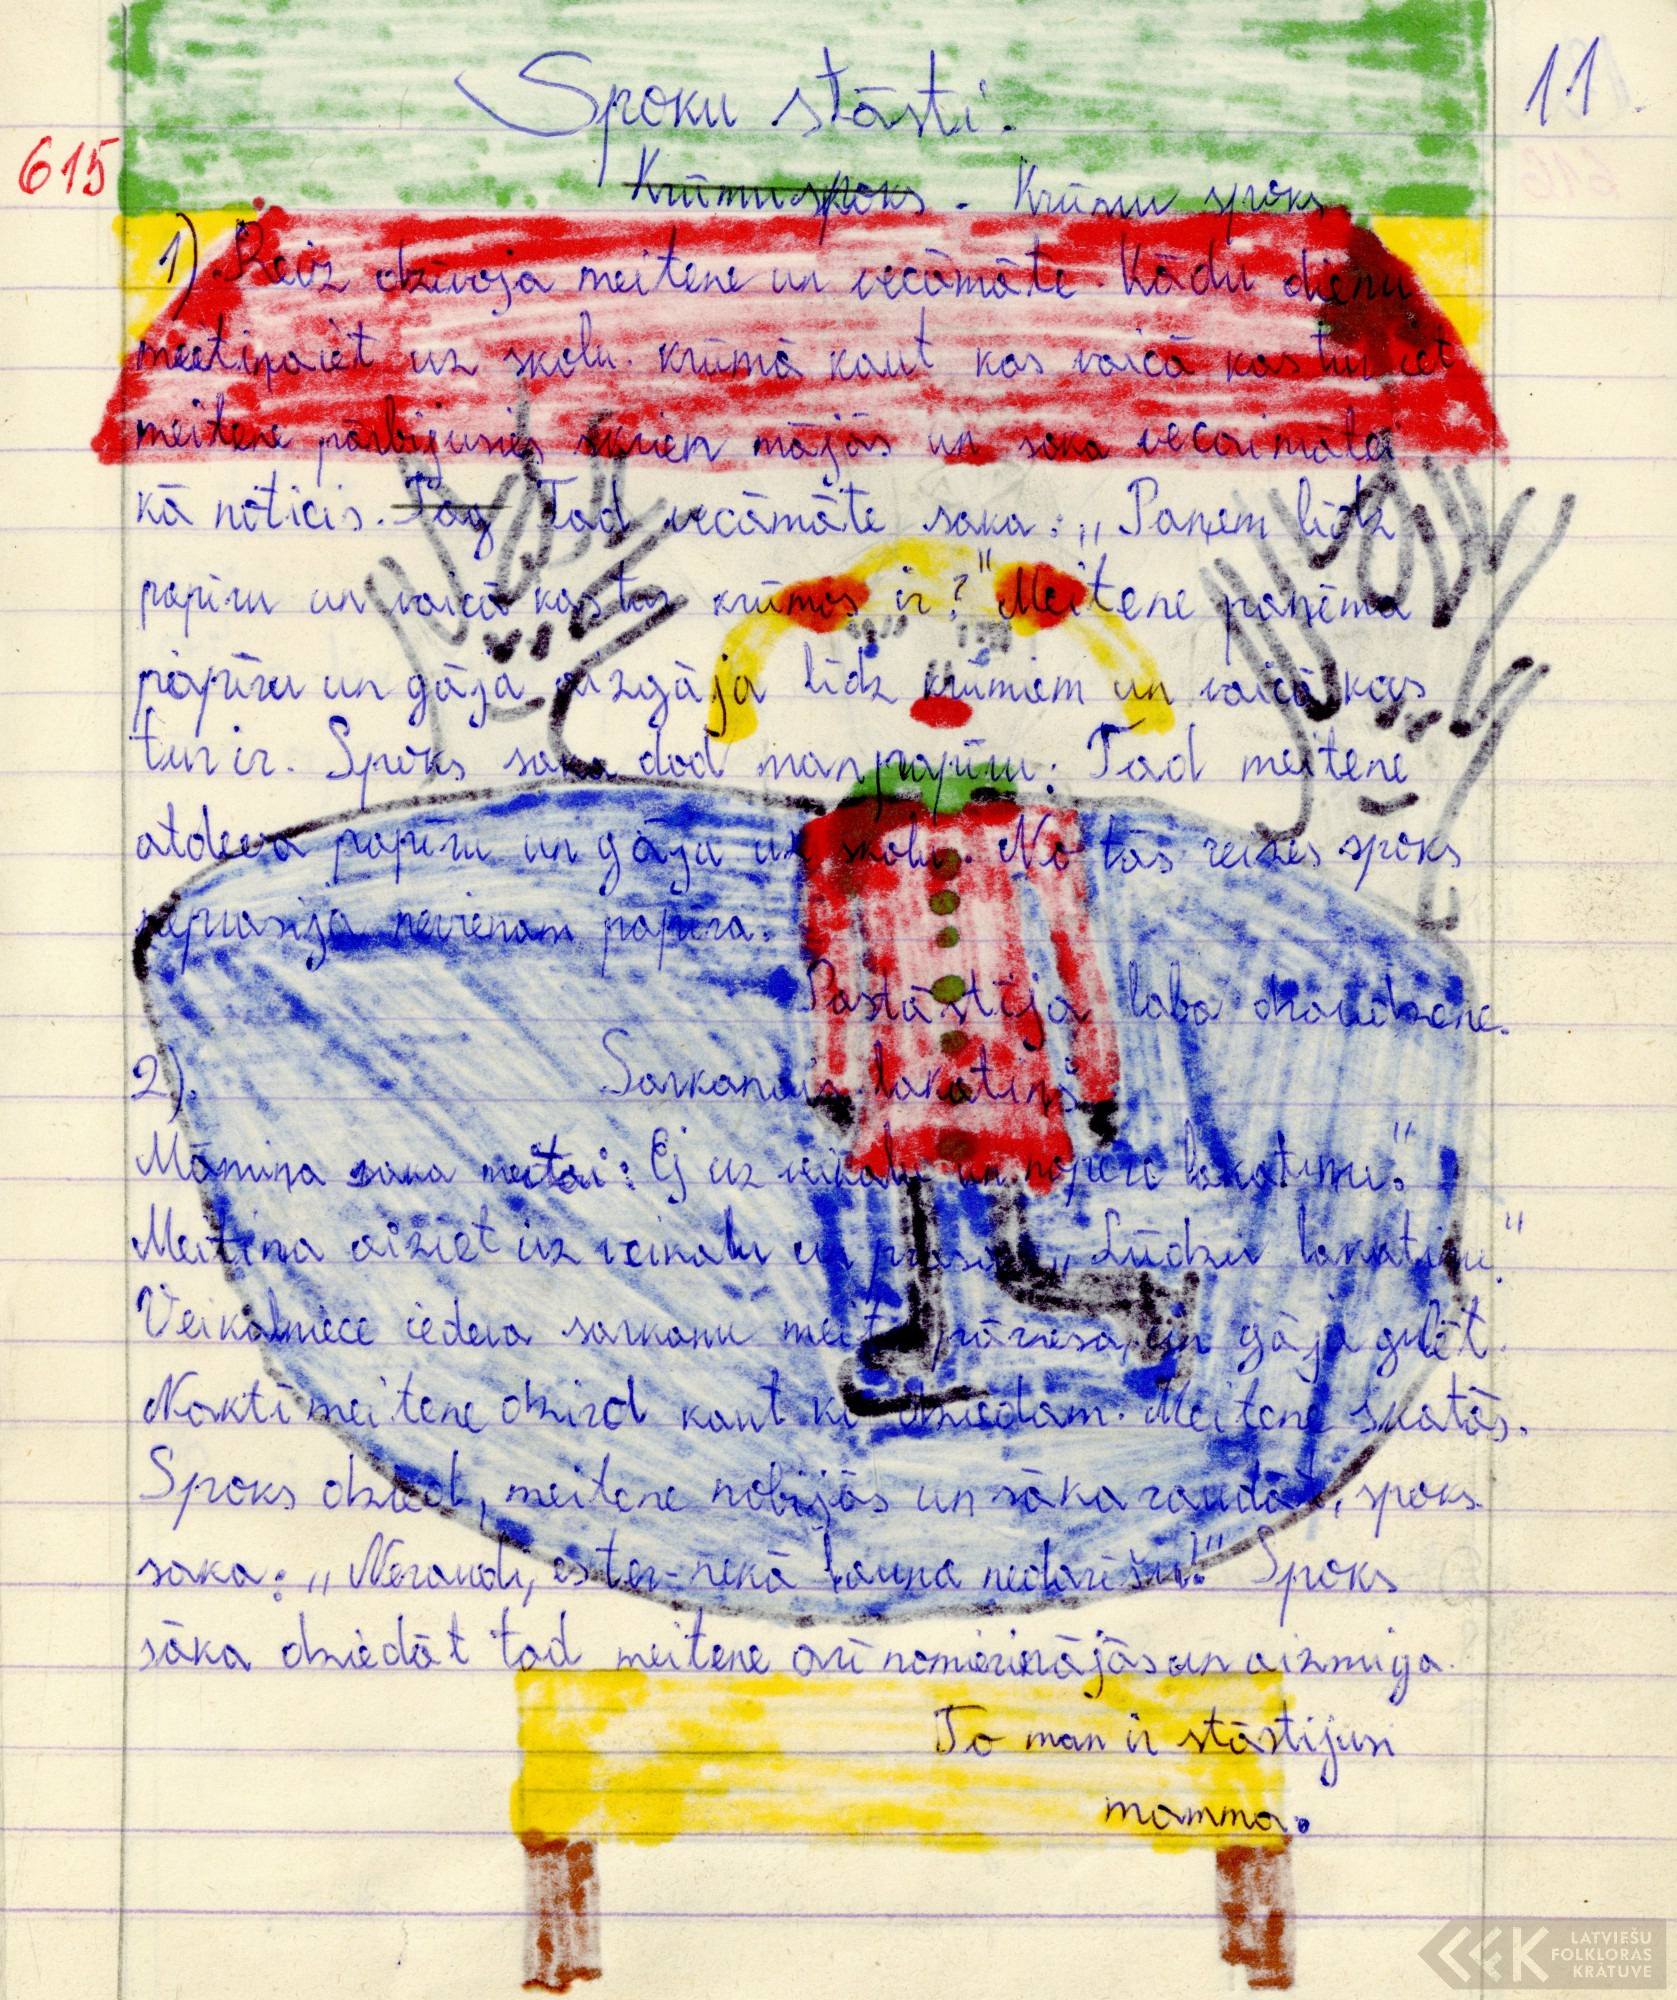 Spoku stāsti.
11.
615
Krūmu spoks. Krūmu spoks
1). Reiz dzīvoja meitene un vecāmāte. Kādu dienu
meitiņa iet uz skolu. krūmā kaut kas vaicā kas tur iet
meitene pārbijusies skrien mājās un saka vecaimātei
kā noticis. Tag Tad vecāmāte saka: „Paņem līdz
papīru un vaicā kas tur krūmos ir?" Meitene paņēma
papīru un gāja aizgāja līdz krūmiem un vaicā kas
tur ir. Spoks saka dod man papīru. Tad meitene
atdeva papīru un gāja uz skolu. No tās reizes spoks
neprasīja nevienam papīra.
Pastāstīja laba draudzene.
2). Sarkanais lakatiņš
Māmiņa saka meitai: Ej uz veikalu un nopērc lakatiņu."
Meitiņa aiziet uz veikalu un prasa „Lūdzu lakatiņu."
Veikalniece iedeva sarkanu meit pārnesa, un gāja gulēt.
Naktī meitene dzird kaut ko dziedam. Meitene skatās.
Spoks dzied, meitene nobijās un sāka raudāt, spoks
saka: „Neraudi, es tev nekā ļauna nedarīšu!" Spoks
sāka dziedāt tad meitene arī nomierinājās un aizmiga.
To man ir stāstījusi
mamma.
LATVIEŠU
FOLKLORAS
KRĀTUVE